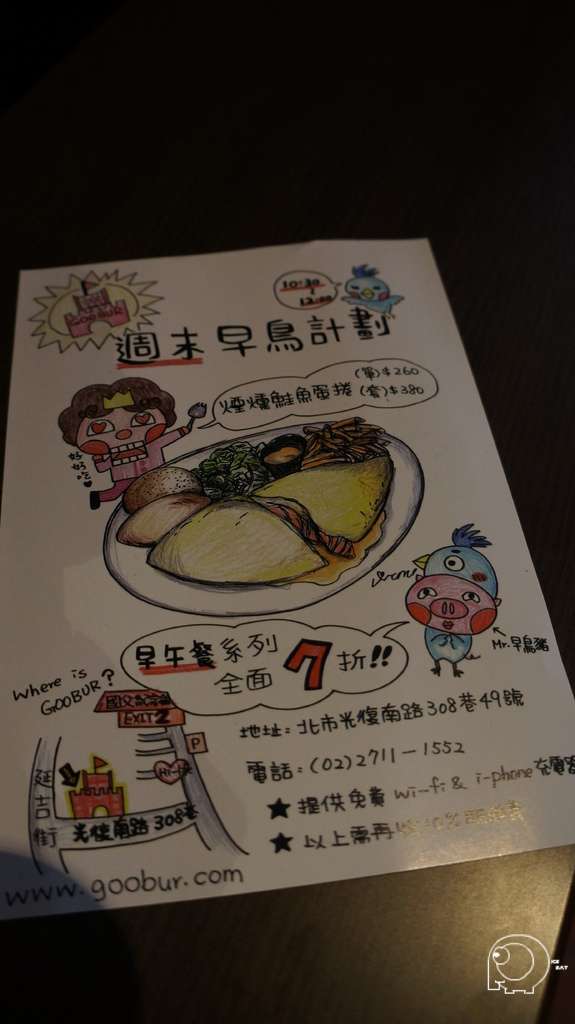 GOOBUR
10:30
~
12:00
週末早鳥計劃
煙燻鮭魚蛋捲
(單)$260
(套)$380
好好吃
早午餐系列
全面7折!!
Mr.早鳥豬
Where is
GOOBUR?
國父紀念館
EXIT 2
P
延吉街
光復南路308巷
地址:北市光復南路308巷49號
電話:(02)2711-1552
★提供免費wi-fi & i-phone充電
★以上需再收10%服務費
www.goobur.com